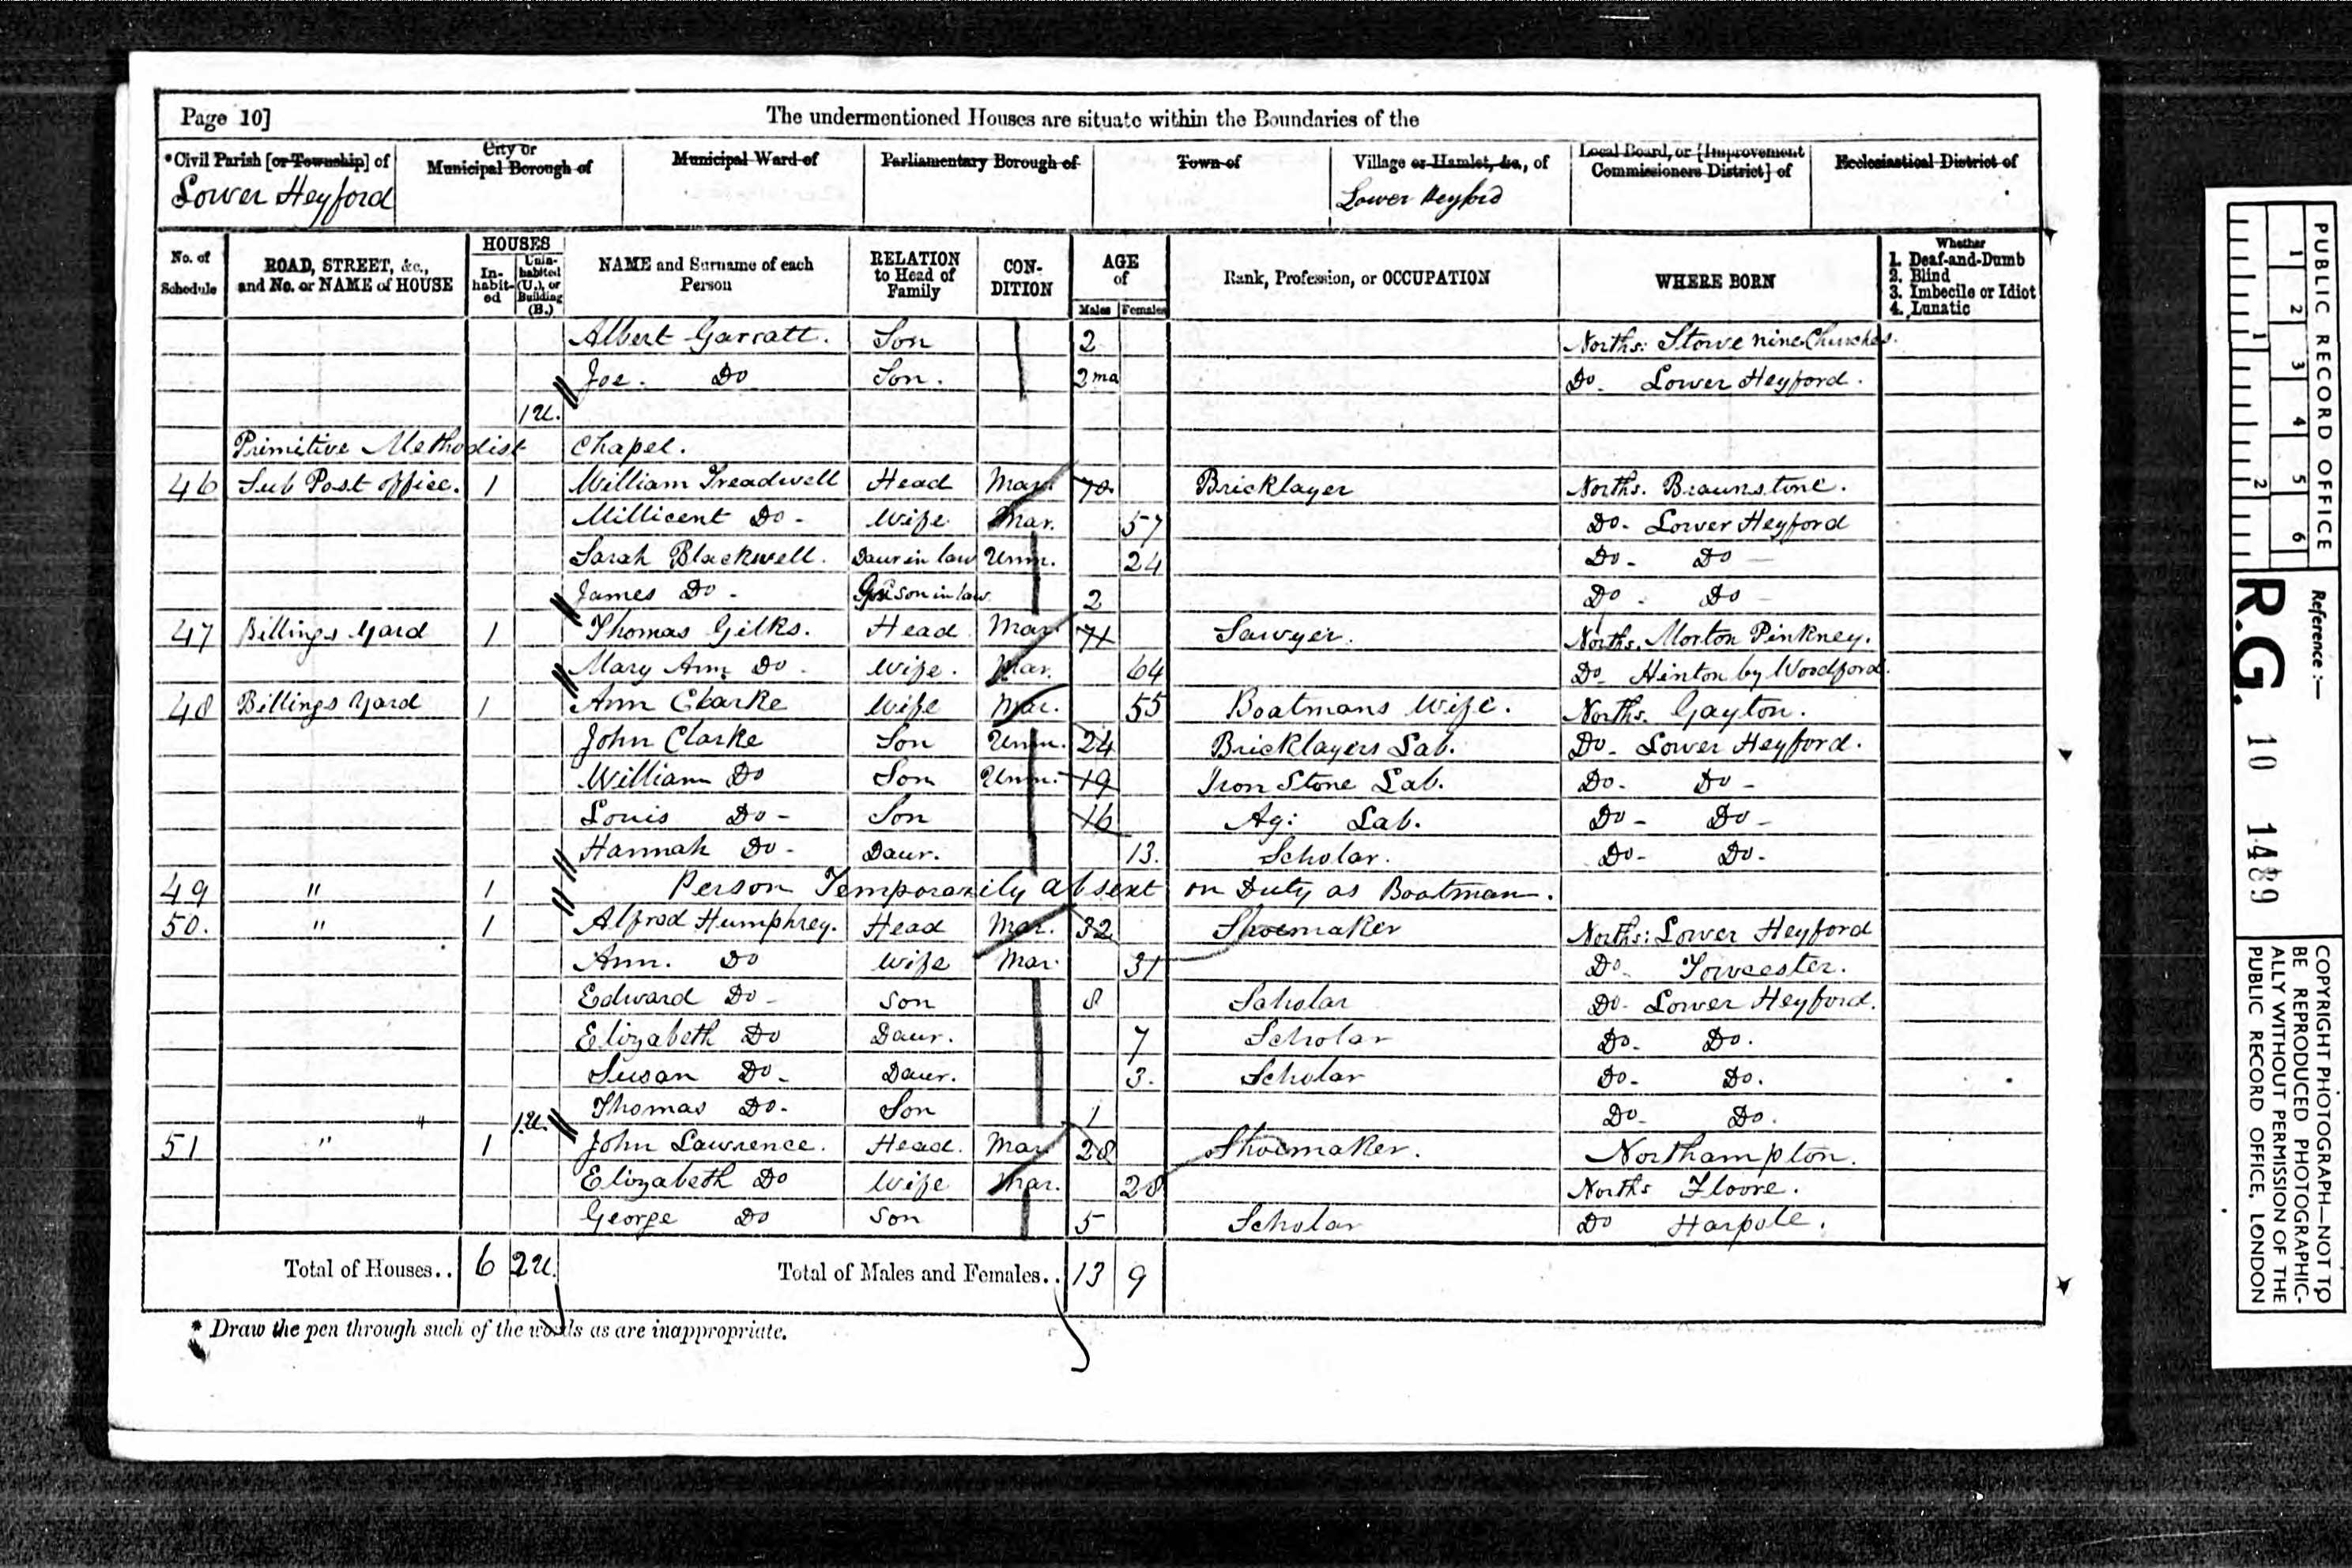 Page 10] The undermentioned Houses are situate within the Boundaries of the
*Civil Parish [or Township] of City or Municipal Borough of Municipal Ward of Parliamentary Borough of Town of Village or Hamlet, &c., of Local Board, or [Improvement Commissioners District] of Ecclesiastical District of
Lower Heyford Lower Heyford
No. of Schedule ROAD, STREET, &c., and No. or NAME of HOUSE HOUSES Inhabited Uninhabited (U.), or Building (B.) NAME and Surname of each Person RELATION to Head of Family CONDITION AGE of Males Females Rank, Profession, or OCCUPATION WHERE BORN Whether 1. Deaf-and-Dumb 2. Blind 3. Imbecile or Idiot 4. Lunatic
Albert Garratt. Son 2 Norths: Stowe nine Churches.
Joe. Do Son. 2 mo Do. Lower Heyford.
1 U.
Primitive Methodist Chapel.
46 Sub Post office. 1 William Treadwell Head Mar. 70 Bricklayer Norths. Braunstone.
Millicent Do - Wife Mar. 57 Do. Lower Heyford
Sarah Blackwell. Daur in law Unm. 24 Do - Do -
James Do - son in law. 2 Do - Do -
47 Billings Yard 1 Thomas Gilks. Head Mar. 71 Sawyer. Norths. Morton Pinkney.
Mary Ann Do - Wife. Mar. 64 Do - Hinton by Woodford.
48 Billings Yard 1 Ann Clarke Wife Mar. 55 Boatmans Wife. Norths. Gayton.
John Clarke Son Unm. 24 Bricklayers Lab. Do - Lower Heyford.
William Do Son Unm. 19 Iron Stone Lab. Do - Do -
Louis Do - Son 16 Ag: Lab. Do - Do -
Hannah Do - Daur. 13. Scholar. Do - Do -
49 " 1 Person Temporarily absent on Duty as Boatman.
50. " 1 Alfred Humphrey. Head Mar. 32 Shoemaker Norths: Lower Heyford
Ann. Do Wife Mar. 31 Do Towcester.
Edward Do - Son 8 Scholar Do - Lower Heyford.
Elizabeth Do Daur. 7 Scholar Do - Do.
Susan Do - Daur. 3. Scholar Do - Do.
Thomas Do - Son 1 Do - Do.
" 1 U.
51 " 1 John Lawrence. Head. Mar. 28 Shoemaker. Northampton.
Elizabeth Do Wife Mar. 28 Norths Floore.
George Do Son 5 Scholar Do Harpole.
Total of Houses.. 6 2 U. Total of Males and Females.. 13 9
* Draw the pen through such of the words as are inappropriate.
PUBLIC RECORD OFFICE
1 2 3 4 5 6
1 2
Reference :-
R.G. 10 1489
COPYRIGHT PHOTOGRAPH—NOT TO BE REPRODUCED PHOTOGRAPHICALLY WITHOUT PERMISSION OF THE PUBLIC RECORD OFFICE, LONDON